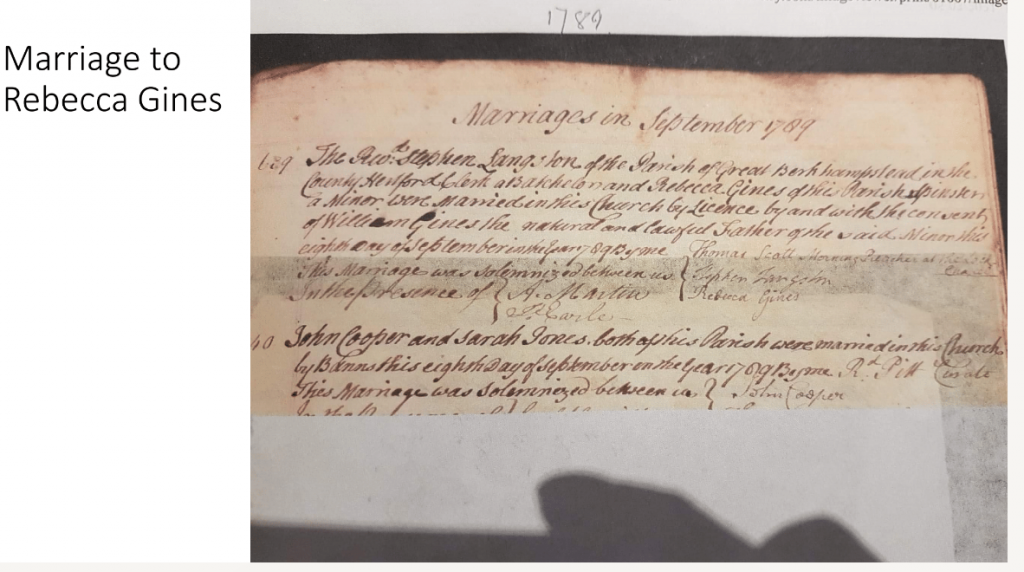 Marriage to
Rebecca Gines
1789
Marriages in September 1789
The Revd. Stephen Langston of the Parish of Great Berkhampstead in the
County Hertford Clerk a Batchelor and Rebecca Gines of this Parish Spinster
a Minor were Married in this Church by Licence by and with the consent
of William Gines the natural and lawful Father of the said Minor this
eighth Day of September in the year 1789 By me Thomas Scott Morning Preacher at the Lock
This Marriage was Solemnized between us { Stephen Langston
In the Presence of { A. Martin Rebecca Gines
Earle
40 John Cooper and Sarah Jones, both of this Parish were married in this Church
by Banns this eighth Day of September in the Year 1789 By me Rd. Pitt Curate
This Marriage was Solemnized between us { John Cooper